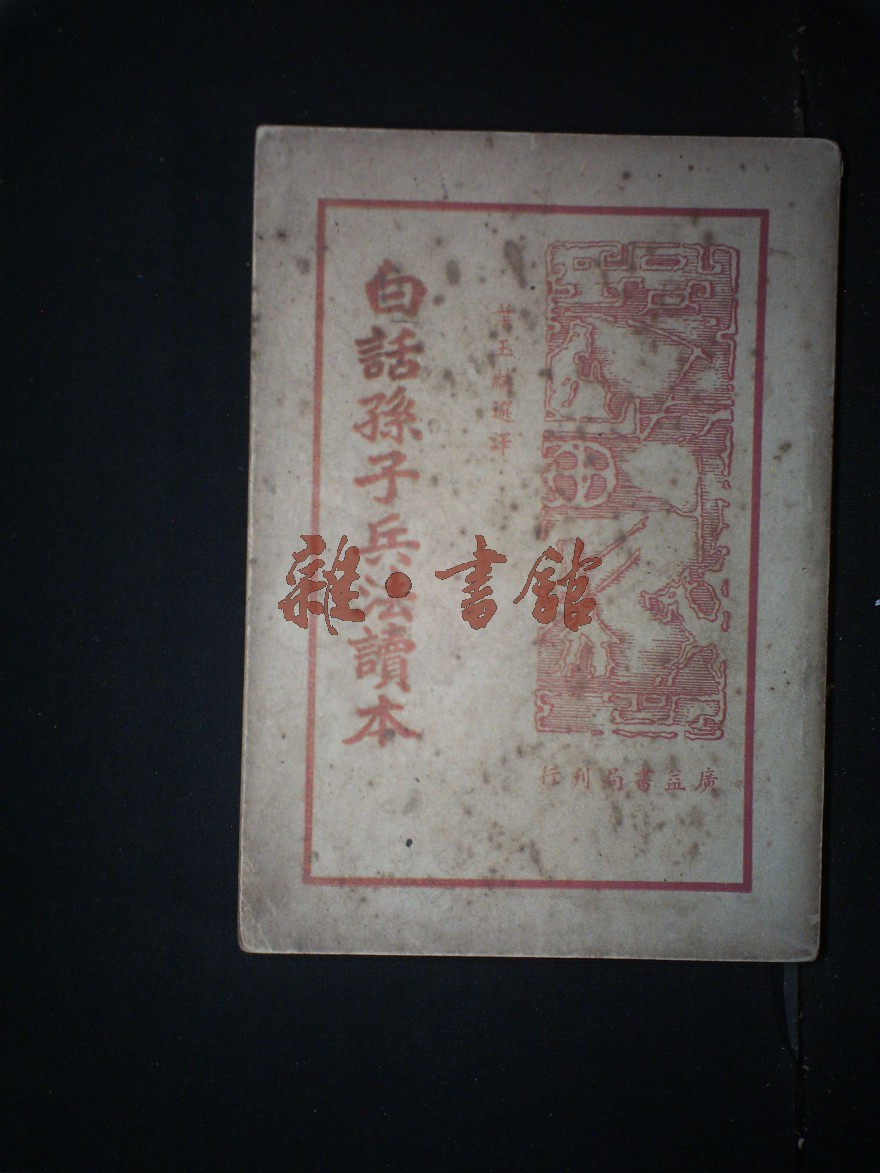 白話孫子兵法讀本
葉玉麟選譯
廣益書局刊行
雜·書館